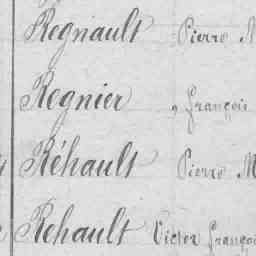 Regnault Pierre M
Regnier François
Réhault Pierre M
Rehault Victor François